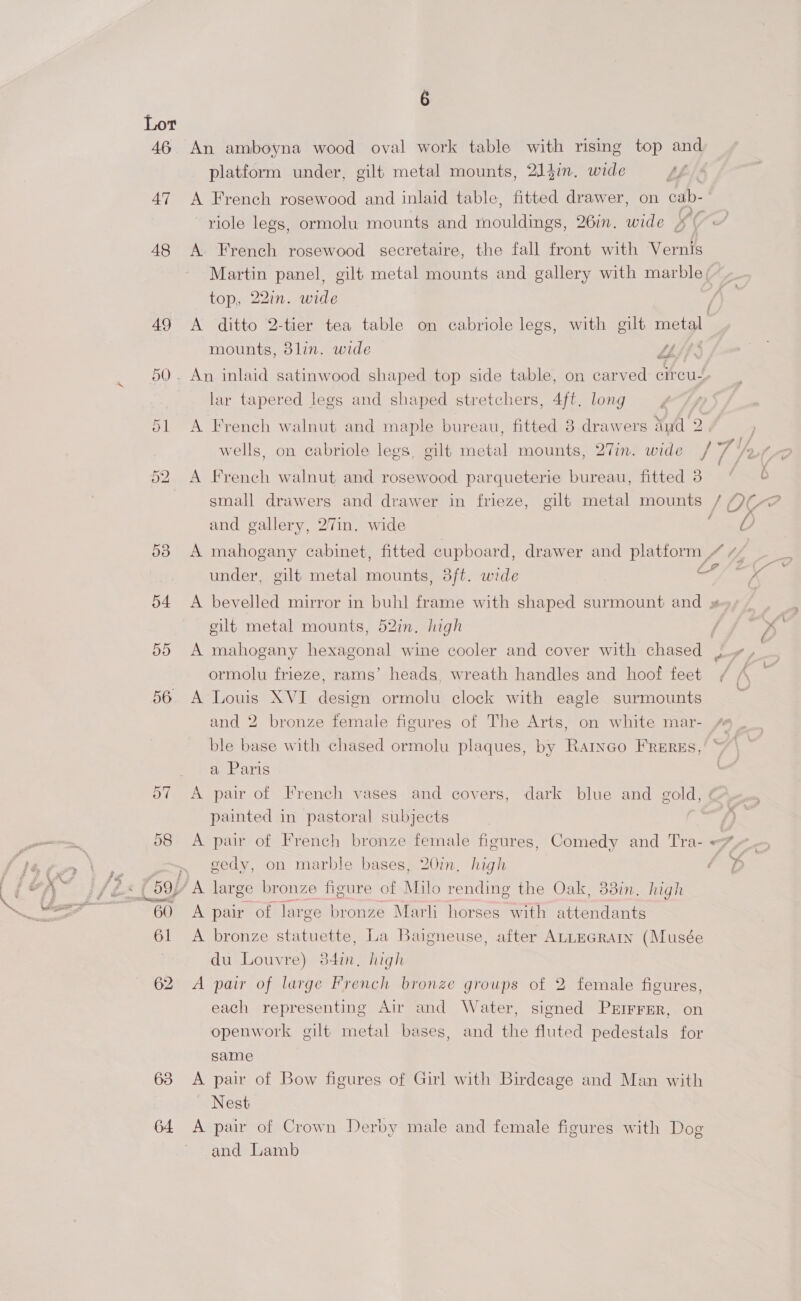 6
Lot
46 An amboyna wood oval work table with rising top and
platform under, gilt metal mounts, 21½in. wide
47 A French rosewood and inlaid table, fitted drawer, on cab-
riole legs, ormolu mounts and mouldings, 26in. wide
48 A French rosewood secretaire, the fall front with Vernis
Martin panel, gilt metal mounts and gallery with marble
top, 22in. wide
49 A ditto 2-tier tea table on cabriole legs, with gilt metal
mounts, 31in. wide
50. An inlaid satinwood shaped top side table, on carved circu-
lar tapered legs and shaped stretchers, 4ft. long
51 A French walnut and maple bureau, fitted 3 drawers and 2
wells, on cabriole legs, gilt metal mounts, 27in. wide
52 A French walnut and rosewood parqueterie bureau, fitted 3
small drawers and drawer in frieze, gilt metal mounts
and gallery, 27in. wide
53 A mahogany cabinet, fitted cupboard, drawer and platform
under, gilt metal mounts, 3ft. wide
54 A bevelled mirror in buhl frame with shaped surmount and
gilt metal mounts, 52in. high
55 A mahogany hexagonal wine cooler and cover with chased
ormolu frieze, rams' heads, wreath handles and hoof feet
56 A Louis XVI design ormolu clock with eagle surmounts
and 2 bronze female figures of The Arts, on white mar-
ble base with chased ormolu plaques, by Raingo Freres,
a Paris
57 A pair of French vases and covers, dark blue and gold,
painted in pastoral subjects
58 A pair of French bronze female figures, Comedy and Tra-
gedy, on marble bases, 20in. high
59 A large bronze figure of Milo rending the Oak, 33in. high
60 A pair of large bronze Marli horses with attendants
61 A bronze statuette, La Baigneuse, after Allegrain (Musée
du Louvre) 34in. high
62 A pair of large French bronze groups of 2 female figures,
each representing Air and Water, signed Peiffer, on
openwork gilt metal bases, and the fluted pedestals for
same
63 A pair of Bow figures of Girl with Birdcage and Man with
Nest
64 A pair of Crown Derby male and female figures with Dog
and Lamb